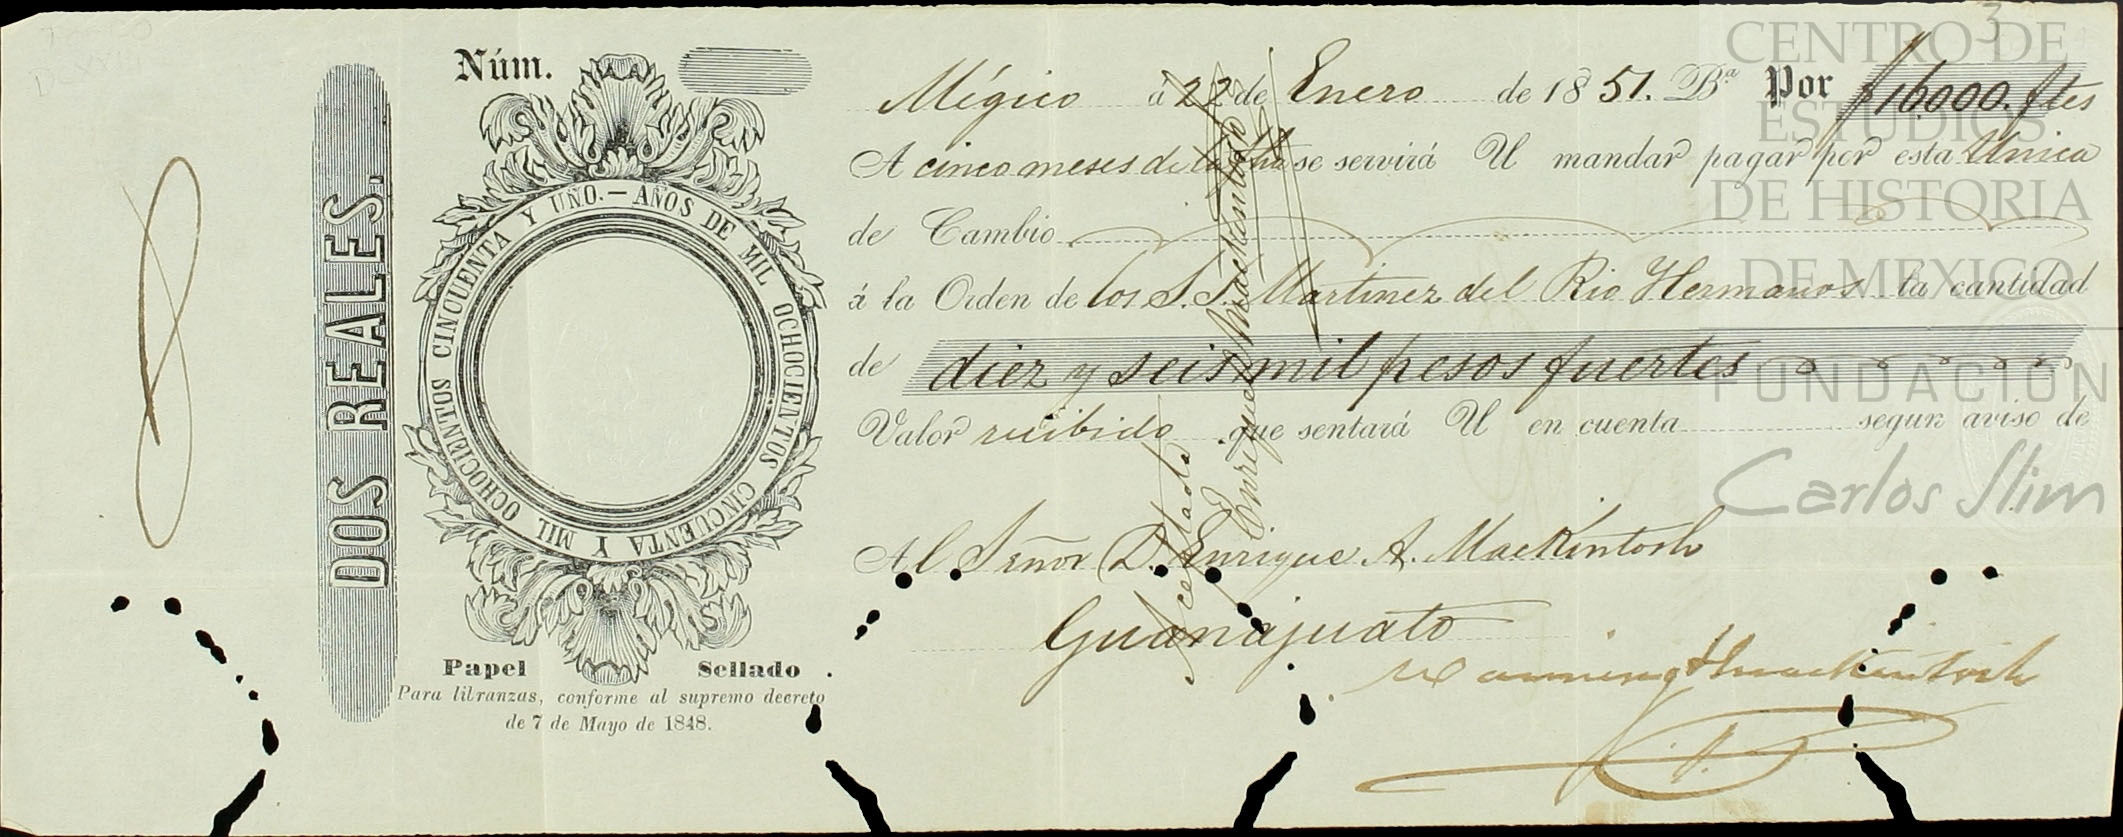 3
CENTRO DE
ESTUDIOS
DE HISTORIA
DE MEXICO
FUNDACIÓN
Carlos Slim
DOS REALES.
Núm.
AÑOS DE MIL OCHOCIENTOS CINCUENTA Y MIL OCHOCIENTOS CINCUENTA Y UNO.—
Papel Sellado
Para libranzas, conforme al supremo decreto
de 7 de Mayo de 1848.
Mégico á 22 de Enero de 1851. Ba Por $16000. ftes
A cinco meses de la fha se servirá U mandar pagar por esta Unica
de Cambio
á la Orden de los S.S. Martinez del Rio Hermanos la cantidad
de diez y seis mil pesos fuertes
Valor recibido que sentará U en cuenta segun aviso de
Al Señor D. Enrique A. MacKintosh
Guanajuato
Manning & Mackintosh
Acetado
Enrique Mackintosh